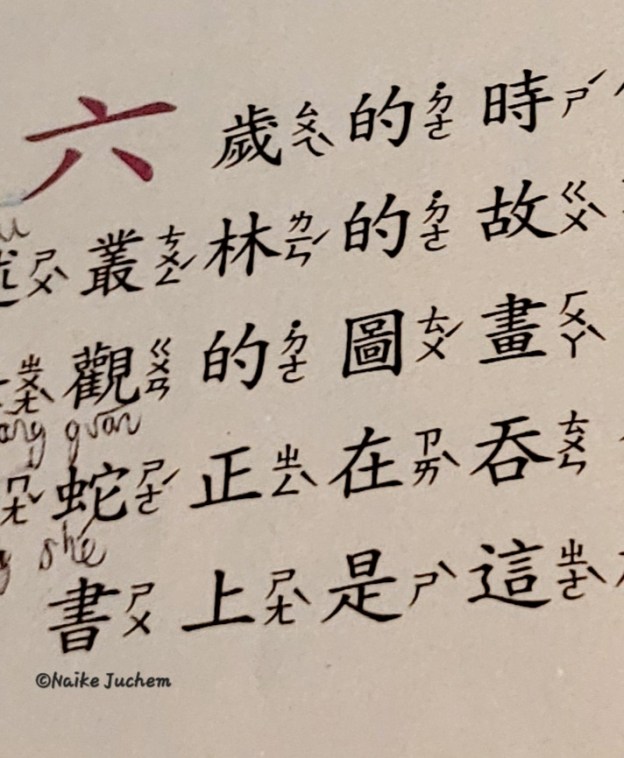 六歲ㄙㄨㄟˋ的˙ㄉㄜ時ㄕˊ
ㄕㄨˋ叢ㄘㄨㄥˊ林ㄌㄧㄣˊ的˙ㄉㄜ故ㄍㄨˋ
ㄓㄨㄤˋ觀ㄍㄨㄢ的˙ㄉㄜ圖ㄊㄨˊ畫ㄏㄨㄚˋ
ang guān
ㄇㄤˇ蛇ㄕㄜˊ正ㄓㄥˋ在ㄗㄞˋ吞ㄊㄨㄣ
g shé
書ㄕㄨ上ㄕㄤˋ是ㄕˋ這ㄓㄜˋ
©Naike Juchem